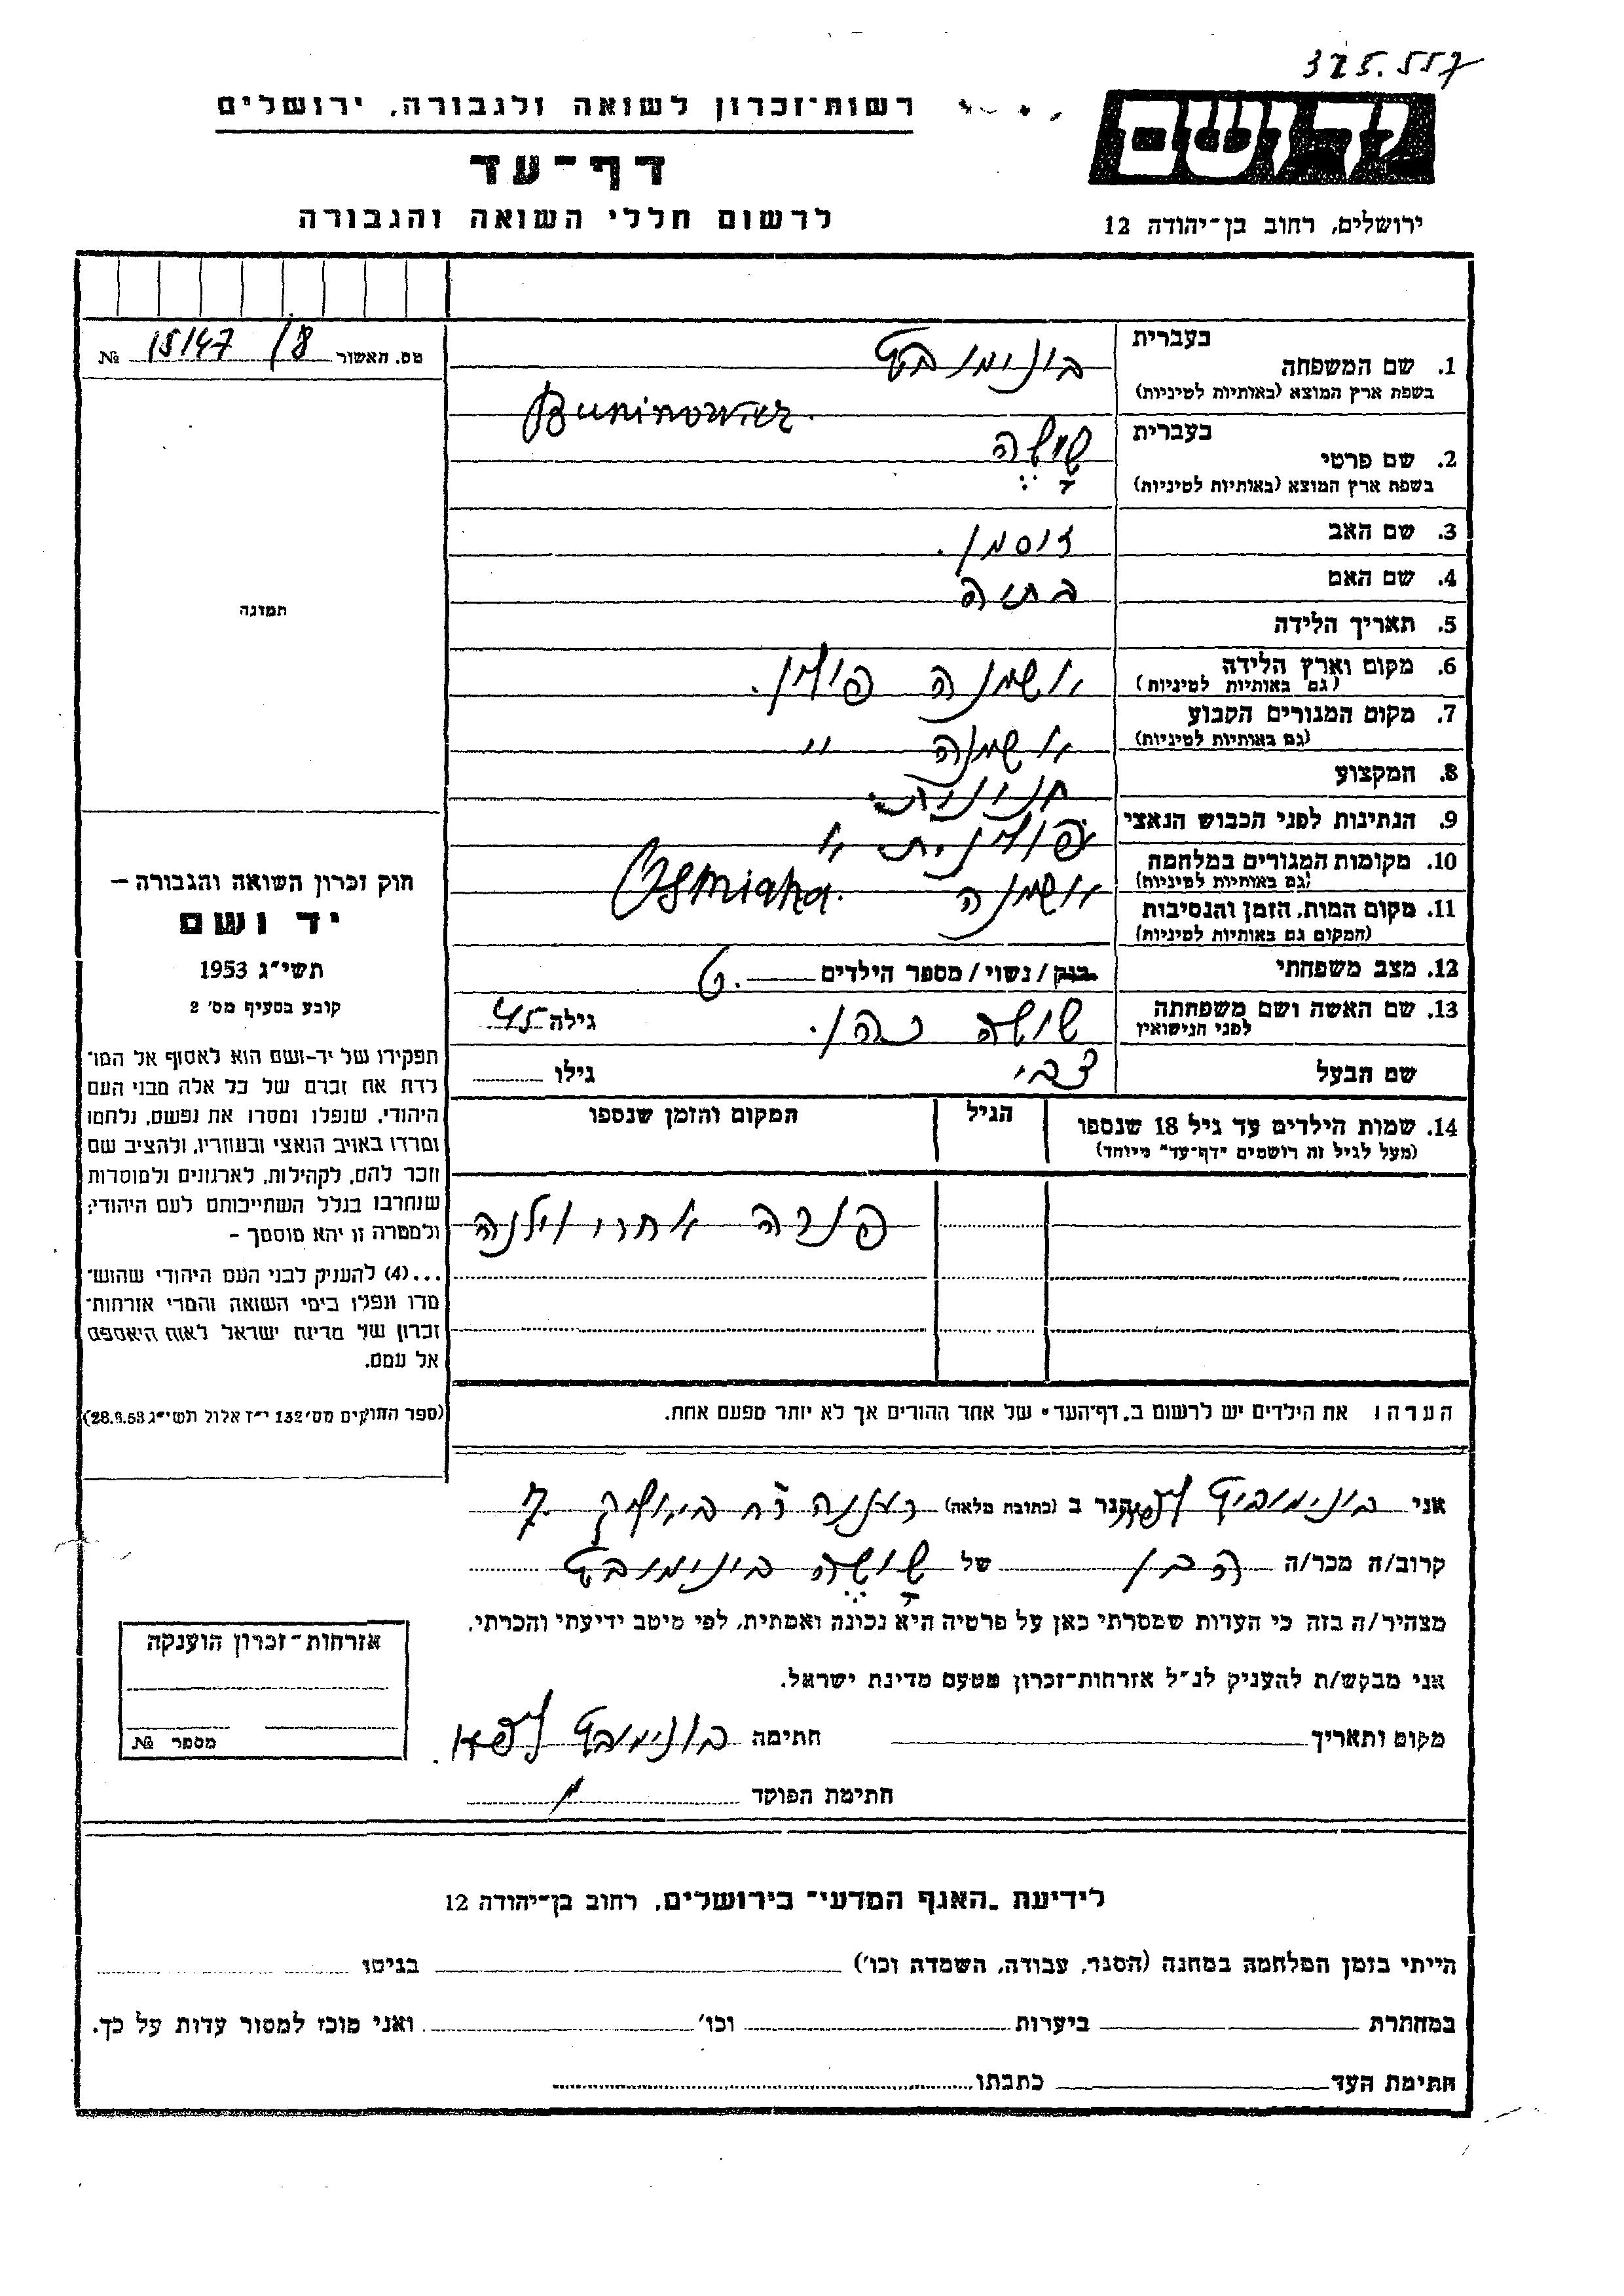 325.557
יד ושם
רשות־זכרון לשואה ולגבורה, ירושלים
דף־עד
לרשום חללי השואה והגבורה
ירושלים, רחוב בן־יהודה 12
מס. האשור 18/ 15147 №
תמונה
בעברית
1. שם המשפחה בונימוביץ
בשפת ארץ המוצא (באותיות לטיניות) Buninowicz.
בעברית
2. שם פרטי שושה
בשפת ארץ המוצא (באותיות לטיניות)
3. שם האב זוסמן.
4. שם האם בתיה
5. תאריך הלידה
6. מקום וארץ הלידה אושמנה פולין.
(גם באותיות לטיניות)
7. מקום המגורים הקבוע אושמנה "
(גם באותיות לטיניות)
8. המקצוע חנונית
9. הנתינות לפני הכבוש הנאצי פולנית
10. מקומות המגורים במלחמה
(גם באותיות לטיניות) אושמנה Osmiana.
11. מקום המות, הזמן והנסיבות
(המקום גם באותיות לטיניות)
12. מצב משפחתי רווק/נשוי/מספר הילדים 6.
13. שם האשה ושם משפחתה שושה כהן. גילה 45
לפני הנישואין
שם הבעל צבי גילו
14. שמות הילדים עד גיל 18 שנספו הגיל המקום והזמן שנספו
(מעל לגיל זה רושמים "דף־עד" מיוחד)
פנרה אחרי וילנה
הערה: את הילדים יש לרשום ב„דף־העד" של אחד ההורים אך לא יותר מפעם אחת.
חוק זכרון השואה והגבורה —
יד ושם
תשי"ג 1953
קובע בסעיף מס' 2
תפקידו של יד-ושם הוא לאסוף אל המו־
לדת את זכרם של כל אלה מבני העם
היהודי, שנפלו ומסרו את נפשם, נלחמו
ומרדו באויב הנאצי ובעוזריו, ולהציב שם
וזכר להם, לקהילות, לארגונים ולמוסדות
שנחרבו בגלל השתייכותם לעם היהודי;
ולמטרה זו יהא מוסמך -
...(4) להעניק לבני העם היהודי שהוש־
מדו ונפלו בימי השואה והמרי אזרחות־
זכרון של מדינת ישראל לאות היאספם
אל עמם.
(ספר החוקים מס' 132 י"ז אלול תשי"ג 28.8.53)
אני בונימוביץ הגר ב (כתובת מלאה) רעננה רח ביאליק 7
קרוב/ה מכר/ה הבן של שושה בונימוביץ
מצהיר/ה בזה כי העדות שמסרתי כאן על פרטיה היא נכונה ואמתית, לפי מיטב ידיעתי והכרתי.
אני מבקש/ת להעניק לנ"ל אזרחות־זכרון מטעם מדינת ישראל.
מקום ותאריך חתימה בונימוביץ
חתימת הפוקד
אזרחות־זכרון הוענקה
מספר №
לידיעת „האגף המדעי" בירושלים, רחוב בן־יהודה 12
הייתי בזמן המלחמה במחנה (הסגר, עבודה, השמדה וכו') בגיטו
במחתרת ביערות וכו' ואני מוכן למסור עדות על כך.
חתימת העד כתבתו